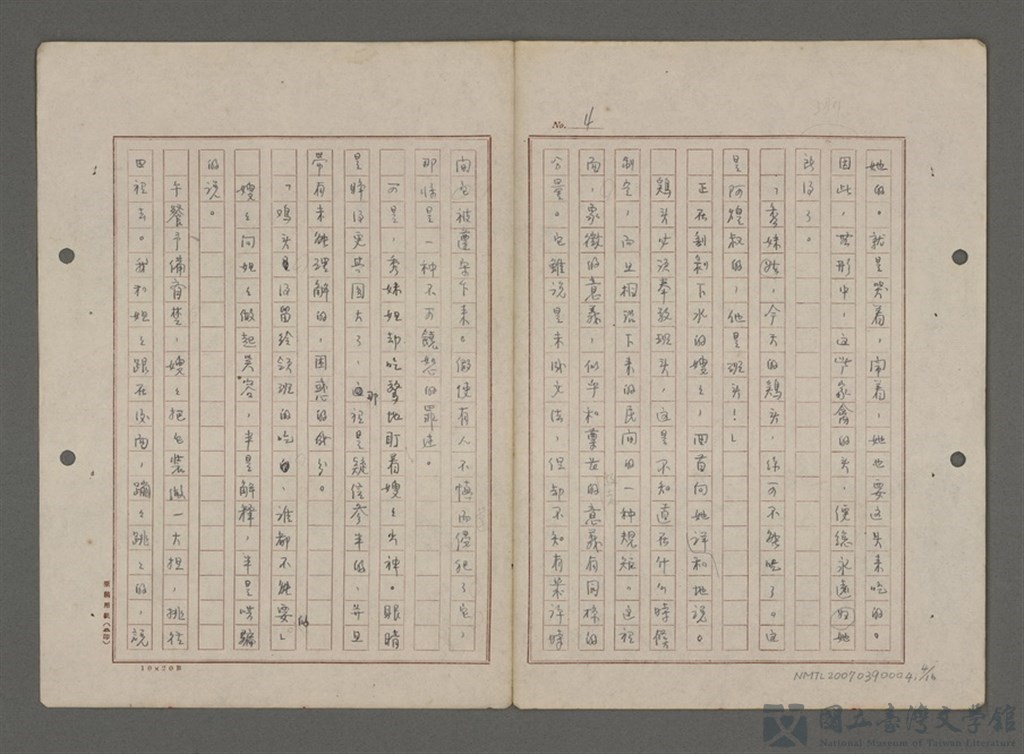 No. 4
她的。就是哭着,鬧着,她也要這头來吃的。
因此,無形中,這家禽的头,便總永遠歸她
所得了。
「秀妹姑,今天的鷄头,你可不能吃了。這
是阿煌叔的,他是班头!」
正在剝剁下水的嫂々,回首向她詳和地說。
鷄头必須奉敬班头,這是不知道在什么時候
制定,而且相沿下來的民間的一种規矩。這裡
面,象徵的意義,似乎和重要的意義有同樣的
分量。它雖說是未成文法,但却不知有若許時
間它被遵守下來。倘使有人不慎而侵犯了它,
那怕是一种不可饒恕的罪过。
可是,秀妹妲却吃驚地盯着嫂々出神。眼睛
是睜得更其圓大了,那裡是疑信參半的,并且
帶有未能理解的,困惑的成分。
「鷄头是得留給領班的吃的,誰都不能要」
嫂々向妲々做起笑容,半是解釋,半是哄騙
的說。
午餐予備齊楚,嫂々把它裝做一大担,挑往
田裡去。我和妲々跟在後面,蹦々跳々的,說
10×20B
NMTL20070390004, 4/16
國立臺灣文學館
National Museum of Taiwan Literature